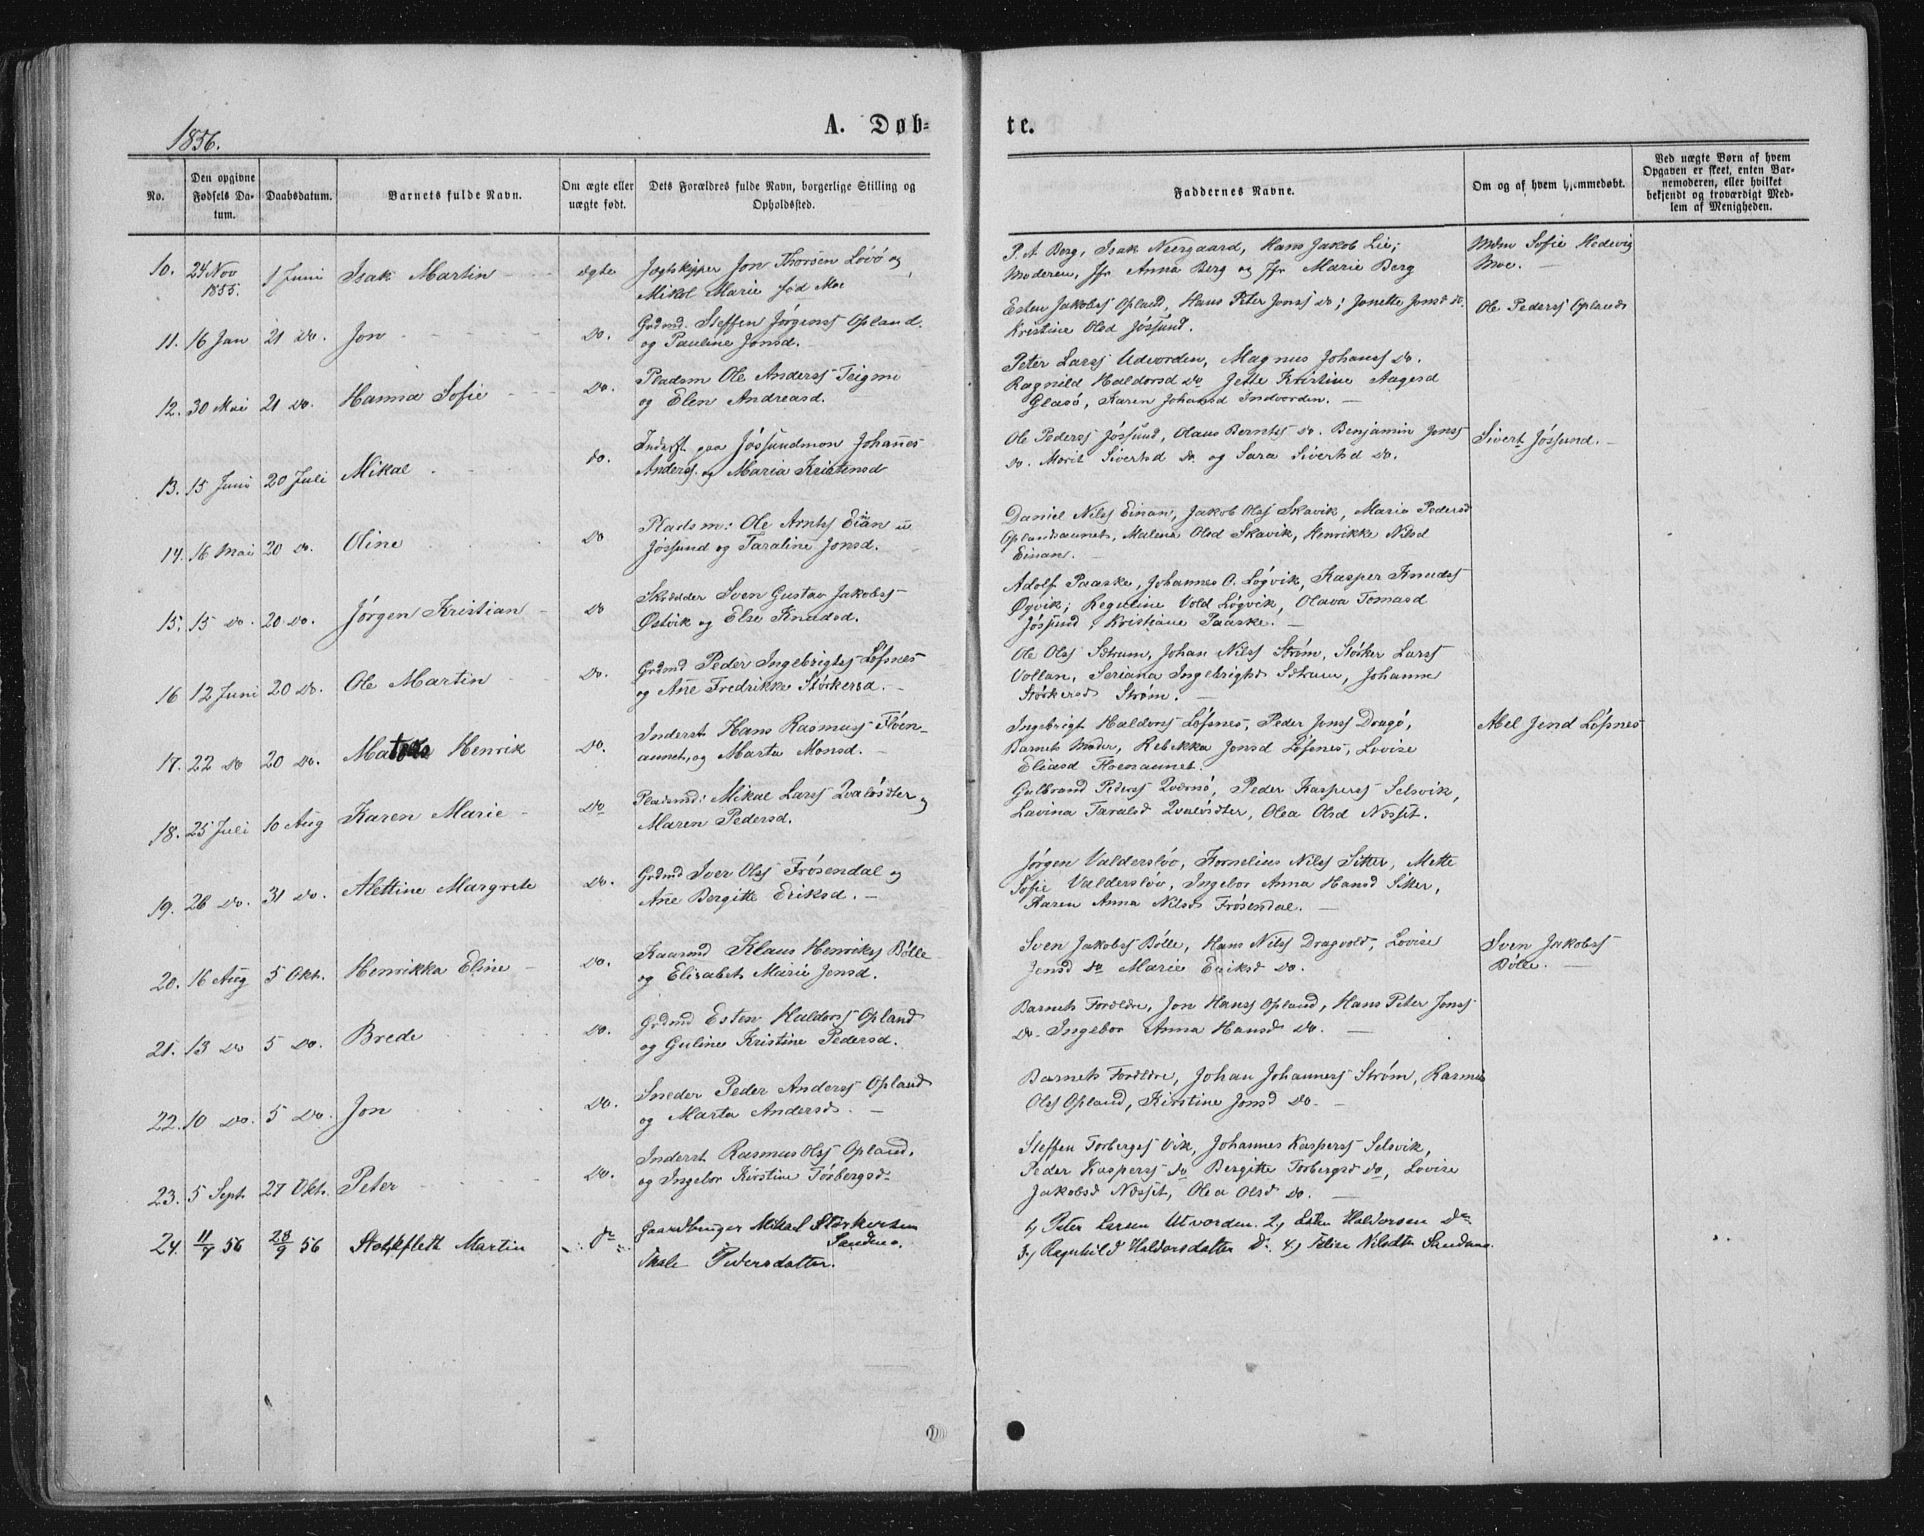 1856.
A. Døb=
te.
No.
Den opgivne Fødsels Da-tum.
Daabsdatum.
Barnets fulde Navn.
Om ægte eller uægte født.
Dets Forældres fulde Navn, borgerlige Stilling og Opholdssted.
Faddernes Navne.
Om og af hvem hjemmedøbt.
Ved uægte Børn af hvem Opgaven er skeet, enten Bar-nemoderen, eller hvilket bekjendt og troværdigt Med-lem af Menigheden.
10. 24 Nov 1855. 1 Juni Isak Martin ægte Jægtskipper Jon Thorsen Løvø og
Mikol Marie fød Moe
P. A Berg, Isak Neergaard, Hans Jakob Lie;
Moderen, Jfr Anna Berg og Jfr Marie Berg
Mdm Sofie Hedevig
Moe. —
11. 16 Jan 21 do. Jon do. Grdmd. Steffen Jørgenss Opland.
og Pauline Jonsd. —
Esten Jakobss Opland, Hans Peter Jonss do; Jonette Jonsd do.
Kristine Olsd Jøssund.
Ole Pederss Oplands
12. 30 Mai 21 do. Hanna Sofie do. Pladsm Ole Anderss Teigmo
og Elen Andreasd.
Peter Larss Udvorden, Magnus Johanss do.
Ragnild Haldorsd do Jette Kristine Aagesd
Glasø, Karen Johansd Indvorden. —
13. 15 Juni 20 Juli Mikal do. Inderst paa Jøssundmon Johannes
Anderss. og Maria Kristensd
Ole Pederss Jøssund, Olaus Berntss do. Benjamin Jonss
do. Marit Sivertsd do. og Sara Sivertsd do.
Sivert Jøssund. —
14. 16 Mai 20 do. Oline do Pladsm: Ole Arntss Einan u
Jøssund og Taraline Jonsd.
Daniel Nilss Einan, Jakob Olss Skavik, Maria Pedersd
Oplandsaunet, Malena Olsd Skavik, Henrikke Nilsd
Einan. —
15. 15 do. 20 do. Jørgen Kristian do Skrædder Sven Gustav Jakobss
Østvik og Else Knudsd.
Adolf Paaske, Johannes O. Løgvik, Kasper Knudss
Øyvik; Reguline Vold Løgvik, Olava Tomasd
Jøssund, Kristiane Paaske. —
16 12 Juni 20 do. Ole Martin do. Grdmd Peder Ingebrigtss Løfsnes
og Ane Fredrikke Størkersd. —
Ole Olss Sætrum, Johan Nilss Strøm, Størker Larss
Vollan, Seriana Ingebrigtsd Sætrum, Johanna
Størkersd Strøm. —
17. 22 do 20 do. Henrik do. Inderst Hans Rasmuss Floen-
aunet, og Marta Monsd. —
Ingebrigt Haldorss Løfsnes, Peder Jonss Dragø,
Barnets Moder, Rebekka Jonsd Løfsnes, Lovise
Eliasd Floenaunet.
Abel Jensd Løfsnes
18. 25 Juli 10 Aug Karen Marie do Pladsmd: Mikal Larss Qvaløsæter og
Maren Pedersd.
Gulbrand Pederss Qværnø, Peder Kasperss Selsvik,
Lavina Taralsd Qvaløsæter, Olea Olsd Næsset.
19. 26 do. 31 do. Alettine Margrete do. Grdmd Iver Olss Frøsendal og
Ane Bergitte Eriksd. —
Jørgen Valdersløv, Kornelius Nilss Sitter, Mette
Sofie Valdersløv, Ingebor Anna Hansd Sitter,
Karen Anna Nilsd Frøsendal. —
20. 16 Aug 5 Okt. Henrikka Eline do. Kaarmd Klaus Henrikss Bølle
og Elisabet Marie Jensd.
Sven Jakobss Bølle, Hans Nilss Dragvold, Lovise
Jensd do Marie Eriksd do.
Sven Jakobss
Bølle. —
21. 13 do 5 do. Brede do. Grdmd Esten Haldorss Opland
og Guline Kristine Pedersd.
Barnets Forældre, Jon Hanss Opland, Hans Peter Jonss
do. Ingebor Anna Hansd do. —
22. 10 do. 5 do. Jon do. Sneder Peder Anderss Opland
og Marta Andersd. —
Barnets Forældre, Johan Johanness Strøm, Rasmus
Olss Opland, Kirstine Jonsd do. —
23. 5 Sept 27 Okt. Peter do. Inderst Rasmus Olss Opland.
og Ingebor Kirstine Torbergsd.
Steffen Torbergss Vik, Johannes Kasperss Selsvik,
Peder Kasperss do Bergitte Torbergsd do, Lovise
Jakobsd Næsset, Olea Olsd do. —
24. 11/7 56 28/9 56 Stockfleth Martin do Gaardbruger Mikael Størkersen
Sandmo.
Pedersdatter.
1) Peter Larsen Utvorden. 2) Esten Haldorsen do
3) Ragnhild Haldorsdatter do. 4) Nilsdtr Sandmo.